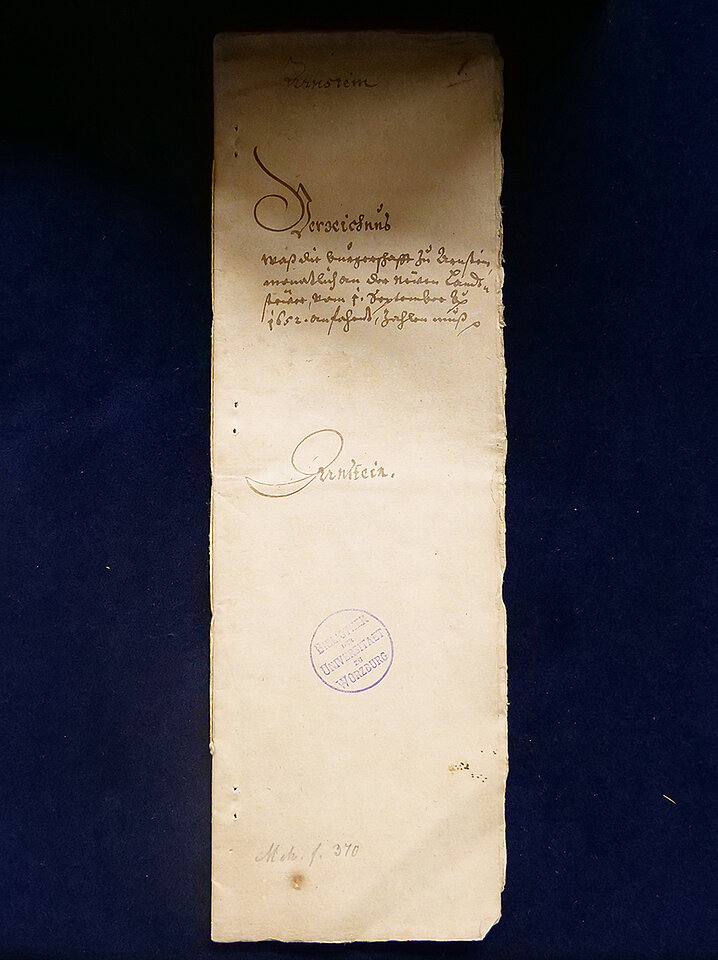 Arnstein
1.
Verzeichnus
Waß die burgerschafft zu Arnstein
monatlich an der neüen Landt-
steüer, vom 1. September
1652. anfahent, zahlen muß
Arnstein.
BIBLIOTHEK
DER
UNIVERSITAET
ZU
WÜRZBURG
M ch. f. 370